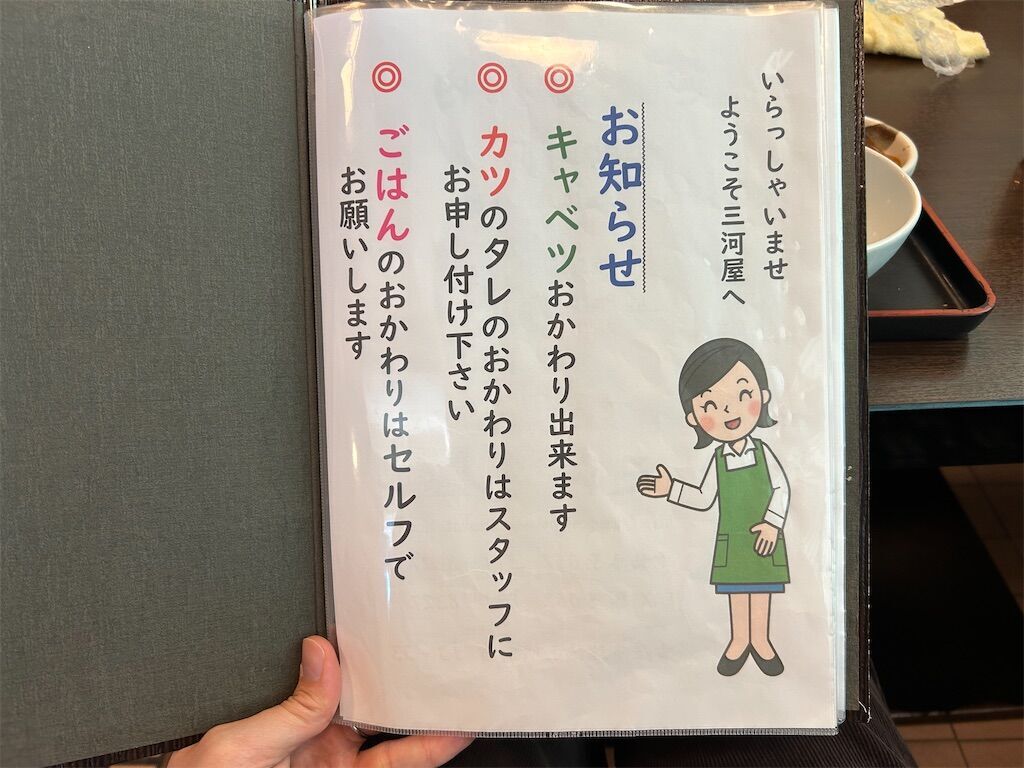 いらっしゃいませ
ようこそ三河屋へ
お知らせ
◎ キャベツおかわり出来ます
◎ カツのタレのおかわりはスタッフに
お申し付け下さい
◎ ごはんのおかわりはセルフで
お願いします